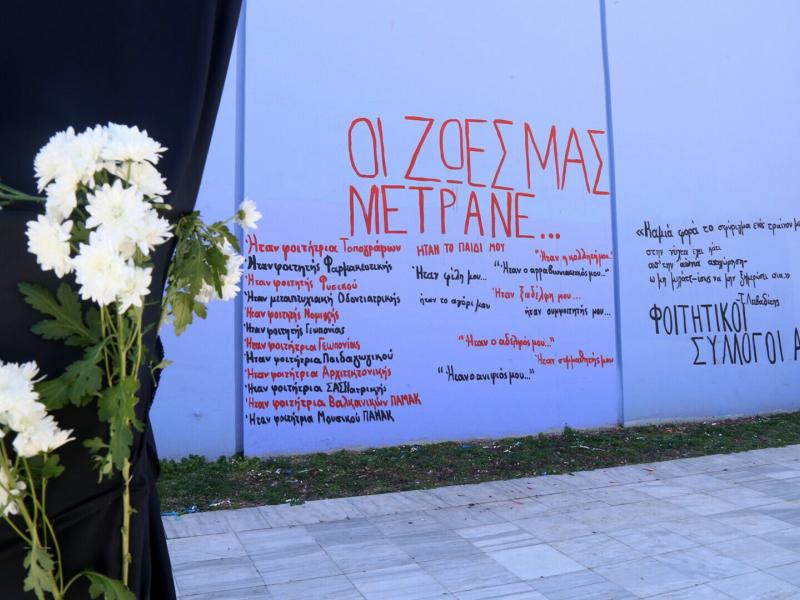 ΟΙ ΖΩΕΣ ΜΑΣ
ΜΕΤΡΑΝΕ...
Ήταν φοιτήτρια Τοπογράφων
Ήταν φοιτητής Φαρμακευτικής
Ήταν φοιτητής Φυσικού
Ήταν μεταπτυχιακή Οδοντιατρικής
Ήταν φοιτητής Νομικής
Ήταν φοιτητής Γεωπονίας
Ήταν φοιτήτρια Γεωπονίας
Ήταν φοιτήτρια Παιδαγωγικού
Ήταν φοιτήτρια Αρχιτεκτονικής
Ήταν φοιτήτρια
Ήταν φοιτήτρια Βαλκανικών ΠΑΜΑΚ
Ήταν φοιτήτρια Μουσικού ΠΑΜΑΚ
ΗΤΑΝ ΤΟ ΠΑΙΔΙ ΜΟΥ
"Ήταν η κολλητή μου"
Ήταν φίλη μου...
"Ήταν ο αρραβωνιαστικός μου..."
Ήταν ξαδέλφη μου...
ήταν το αγόρι μου
ήταν συμφοιτητής μου...
"Ήταν ο αδελφός μου..."
Ήταν συμμαθητής μου
"Ήταν ο ανιψιός μου..."
«Καμιά φορά το σφύριγμα ενός τραίνου
στην νύχτα έχει κάτι
απ' την
Τ. Λειβαδίτης
ΦΟΙΤΗΤΙΚΟΙ
ΣΥΛΛΟΓΟΙ Α